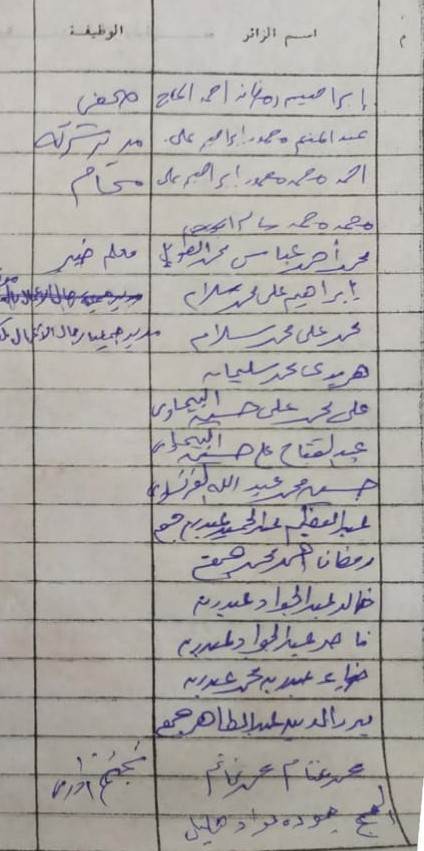 م اسم الزائر الوظيفة
إبراهيم رمضان احمد الحاج صحفى
عبد المنعم محمود إبراهيم على مدير شركة
احمد محمد محمود إبراهيم على محام
محمد محمد سالم
محمد أحمد عباس محمد معلم خبير
إبراهيم على محمد سلام
محمد على محمد سلام مدير جمعية رجال الأعمال
هريدى محمد سليمان
على محمد على حسين البيجاوى
عبد الفتاح على حسين البيجاوى
حسين محمد عبد الله
عبد العظيم عبد الحميد عبدربه جمعه
رمضان احمد محمد جمعه
خالد عبد الجواد عبدربه
ناصر عبد الجواد عبدربه
ضياء عبدربه محمد عبدربه
بدر الدين عبد الطاهر جمعه
محمد غنام محمد غانم
جوده فؤاد خليل